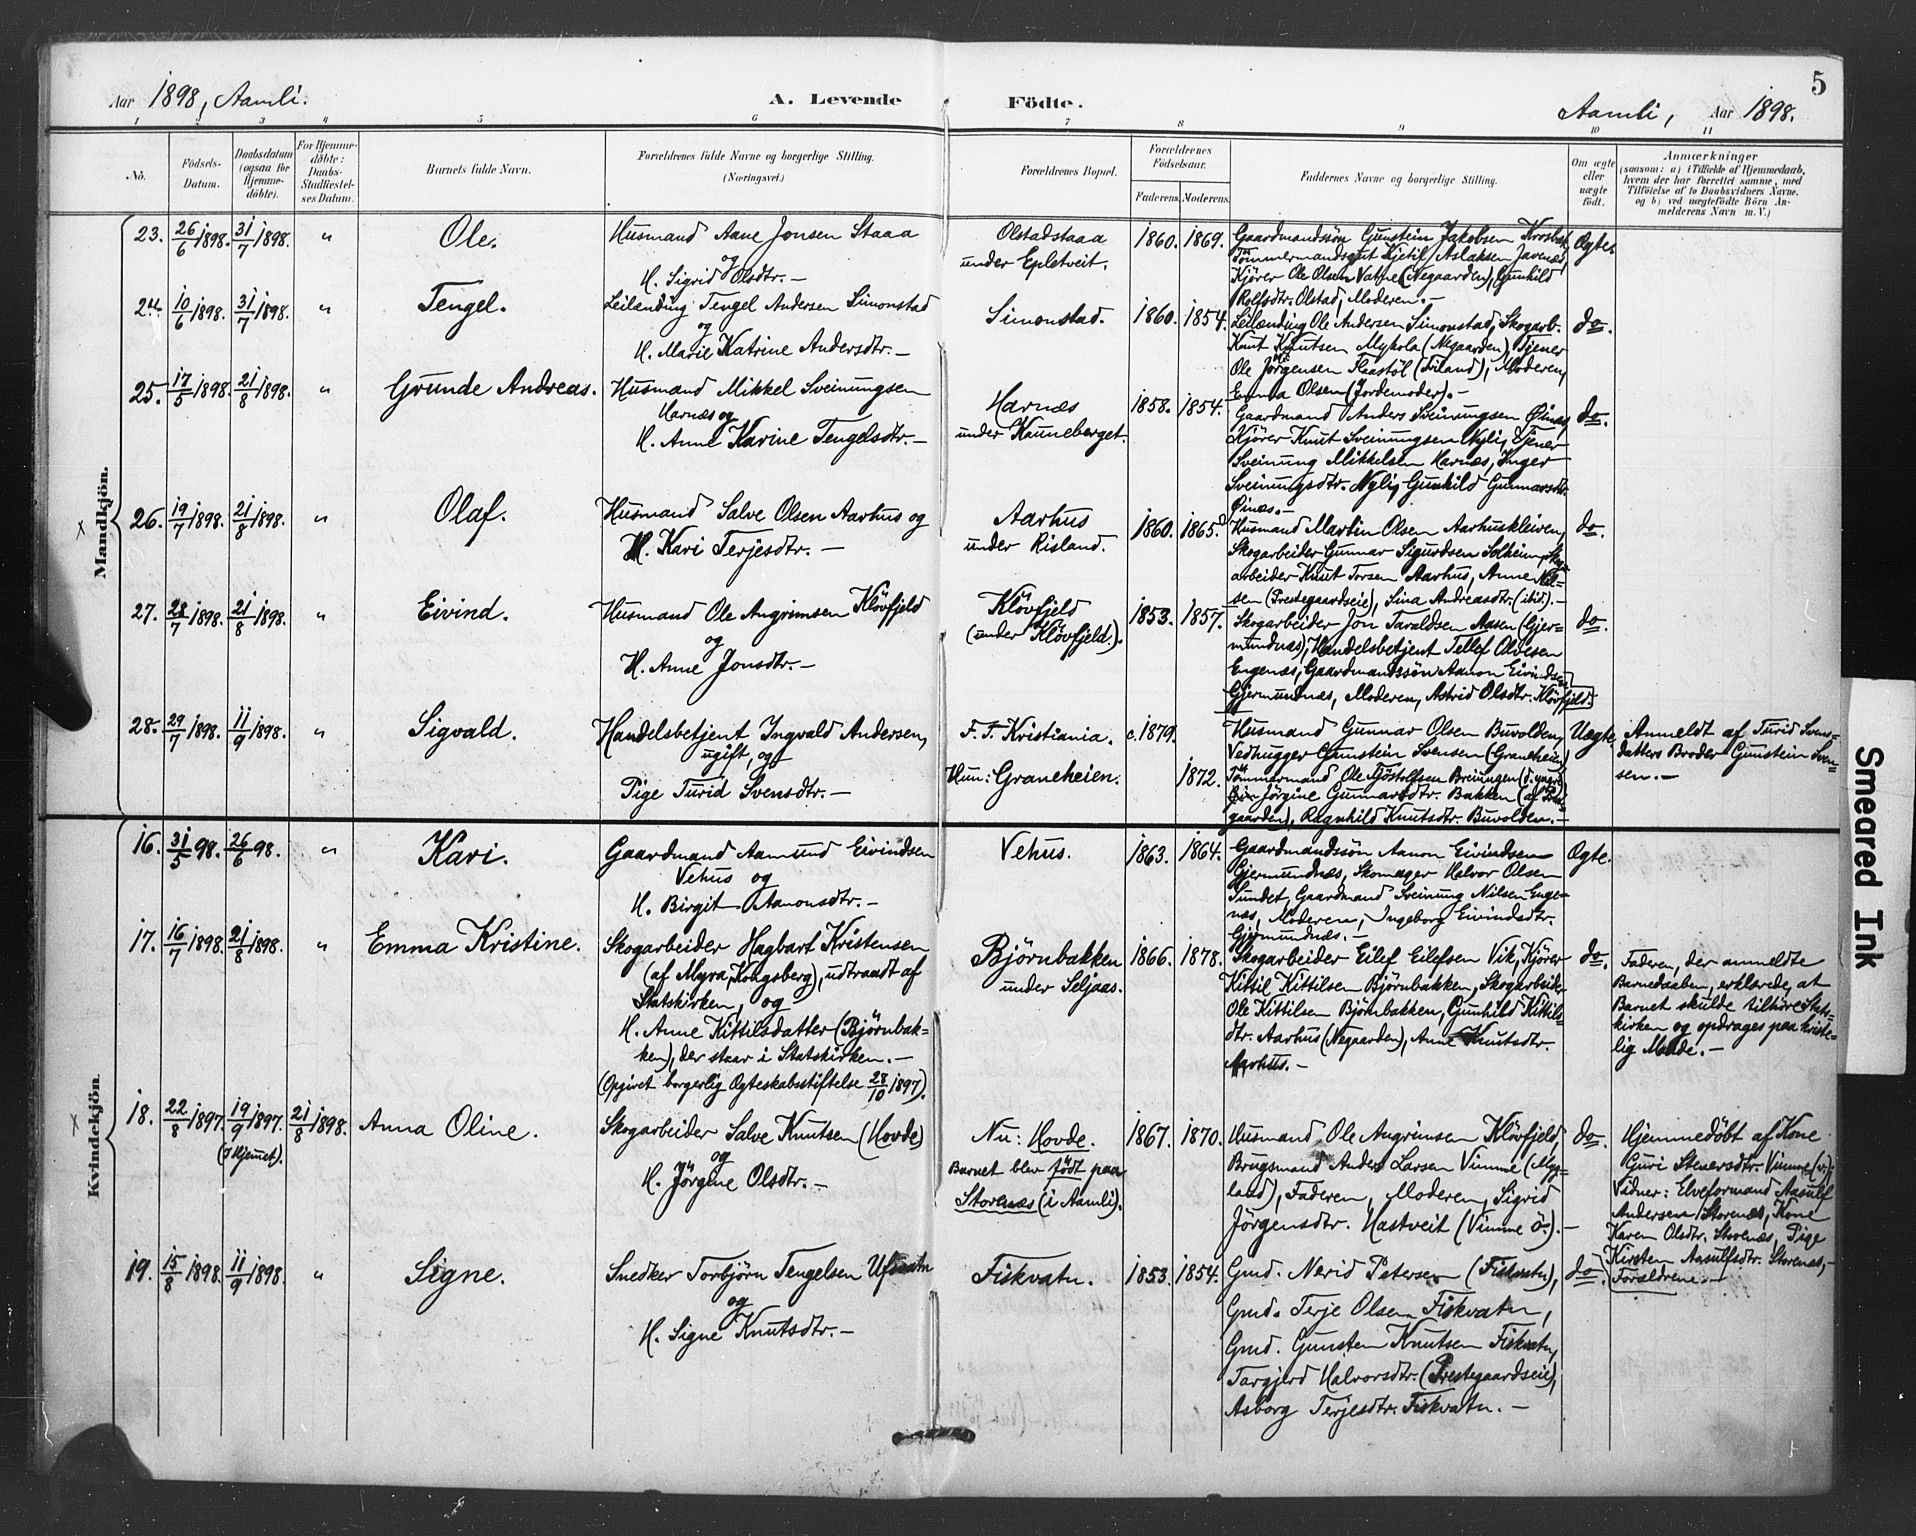 5
Aar 1898, Aamli.
A. Levende Födte.
Aamli, Aar 1898.
1 2 3 4 5 6 7 8 9 10 11
No.
Födsels-
Datum.
Daabsdatum
(ogsaa for
Hjemme-
döbte).
For Hjemme-
döbte:
Daabs-
Stadfæstel-
ses Datum.
Barnets fulde Navn.
Forældrenes fulde Navne og borgerlige Stilling.
(Næringsvei.)
Forældrenes Bopæl.
Forældrenes
Födselsaar.
Faderens. Moderens.
Faddernes Navne og borgerlige Stilling.
Om ægte
eller
uægte
födt.
Anmærkninger
(saasom: a) i Tilfælde af Hjemmedaab,
hvem der har forrettet samme, med
Tilföielse af to Daabsvidners Navne.
og b) ved uægtefödte Börn An-
melderens Navn m. V.)
Mandkjön.
23. 26/6 1898. 31/7 1898. " Ole.
Husmand Aane Jonsen Staaa
og
H. Sigrid Olsdtr. —
Olstadstaaa
under Epletveit.
1860. 1869.
Gaardmandssön Gunstein Jakobsen
Tömmermandsgut Kjetil Aslaksen Javenes,
Kjörer Ole Olsen Vatne (Negaarden), Gunhild
Rolfsdtr. Olstad, Moderen. —
Ægte.
24. 10/6 1898. 31/7 1898. " Tengel.
Leilænding Tengel Andersen Simonstad
og
H. Marie Katrine Andersdtr. —
Simonstad.
1860. 1854.
Leilænding Ole Andersen Simonstad, Skogarb.
Knut Knutsen Myhola (Negaarden), Tjener
Ole Jörgensen (Friland), Moderen,
Emma Olsen (Jordemoder). —
do.
25. 17/5 1898. 21/8 1898. " Grunde Andreas.
Husmand Mikkel Sveinungsen
Harnæs og
H. Anne Karine Tengelsdtr. —
Harnæs
under Kauneberget.
1858. 1854.
Gaardmand Anders Sveinungsen Öinæs,
Kjörer Knut Sveinungsen Nylig, Tjener
Sveinung Mikkelsen Harnæs, Inger
Sveinungsdtr. Nylig, Gunhild Gunnarsdtr.
Öinæs. —
do.
26. 19/7 1898. 21/8 1898. " Olaf.
Husmand Salve Olsen Aarhus og
H. Kari Terjesdtr. —
Aarhus
under Risland.
1860. 1865.
Husmand Martin Olsen Aarhuskleiven,
Skogarbeider Gunnar Sigurdsen Solheim, Skog-
arbeider Knut Torsen Aarhus, Anne Nil-
sen (Prestegaardseie), Sina Andreasdtr. (ibid). —
do.
27. 28/7 1898. 21/8 1898. " Eivind.
Husmand Ole Angrimsen Klövfjeld
og
H. Anne Jonsdtr. —
Klövfjeld
(under Klövfjeld).
1853. 1857.
Skogarbeider Jon Taraldsen Aasen (Gjer-
mundnæs), Handelsbetjent Tellef Olvesen
Engenæs, Gaardmandssön Aanon Eivindsen
Gjermundnæs, Moderen, Astrid Olsdtr. Klövfjeld.
do.
28. 29/7 1898. 11/9 1898. " Sigvald.
Handelsbetjent Ingvald Andersen,
ugift, og
Pige Turid Svensdtr. —
F. T. Kristiania.
Hun: Graneheien.
c. 1879.
1872.
Husmand Gunnar Olsen Buvolden,
Vedhugger Gunstein Svensen (Graneheien)
Tömmermand Ole Tjöstolfsen Breiungen (d. yngre)
Jörgine Gunnarsdtr. Bakken (af
gaarden), Ragnhild Knutsdtr. Buvolden. —
Uægte.
Anmeldt af Turid Svens-
datters Broder Gunstein Sven-
sen. —
Kvindekjön.
16. 31/5 98. 26/6 98. " Kari.
Gaardmand Aamund Eivindsen
Vehus og
H. Birgit Aanonsdtr. —
Vehus.
1863. 1864.
Gaardmandssön Aanon Eivindsen
Gjermundnæs, Skomager Halvor Olsen
Sundet, Gaardmand Sveinung Nilsen Enge-
næs, Moderen, Ingeborg Eivindsdtr.
Gjermundnæs. —
Ægte.
17. 16/7 1898. 21/8 1898. " Emma Kristine.
Skogarbeider Hagbart Kristensen
(af Myra, Kongsberg), udtraadt af
Statskirken, og
H. Anne Kittilsdatter (Björnbak-
ken), der staar i Statskirken. —
(Opgivet borgerlig Ægteskabsstiftelse 28/10 1897).
Björnbakken
under Seljaas.
1866. 1878.
Skogarbeider Eilef Eilefsen Vik, Kjörer
Kittil Kittilsen Björnbakken, Skogarbeider
Ole Kittilsen Björnbakken, Gunhild Kittils-
dtr. Aarhus (Negaarden), Anne Knutsdtr.
Aarhus. —
do.
Faderen, der anmeldte
Barnedaaben, erklærede, at
Barnet skulde tilhöre Stats-
kirken og opdrages paa kriste-
lig Maade. —
18. 22/8 1897. 19/9 1897. (I Hjemmet). 21/8 1898. Anna Oline.
Skogarbeider Salve Knutsen (Hovde)
og
H. Jörgine Olsdtr. —
Nu: Hovde.
Barnet blev födt paa
Storenæs (i Aamli).
1867. 1870.
Husmand Ole Angrimsen Klövfjeld,
Brugsmand Anders Larsen Vimme (Myg-
land), Faderen, Moderen, Sigrid
Jörgensdtr. Hastveit (Vimme ö.). —
do.
Hjemmedöbt af Kone
Guri Stenersdtr. Vimme (v.);
Vidner: Elveformand Aasulf
Andersen Storenæs, Kone
Karen Olsdtr. Storenæs, Pige
Kirsten Aasulfsdtr. Storenæs, —
Forældrene. —
19. 15/8 1898. 11/9 1898. " Signe.
Snedker Torbjörn Tengelsen Ufsvatn
og
H. Signe Knutsdtr. —
Fiskvatn.
1853. 1854.
Gmd. Nerid Petersen (Fiskvatn),
Gmd. Terje Olsen Fiskvatn,
Gmd. Gunsten Knutsen Fiskvatn,
Targjerd Halvorsdtr. (Prestegaardseie),
Asborg Terjesdtr. Fiskvatn. —
do.
Smeared Ink